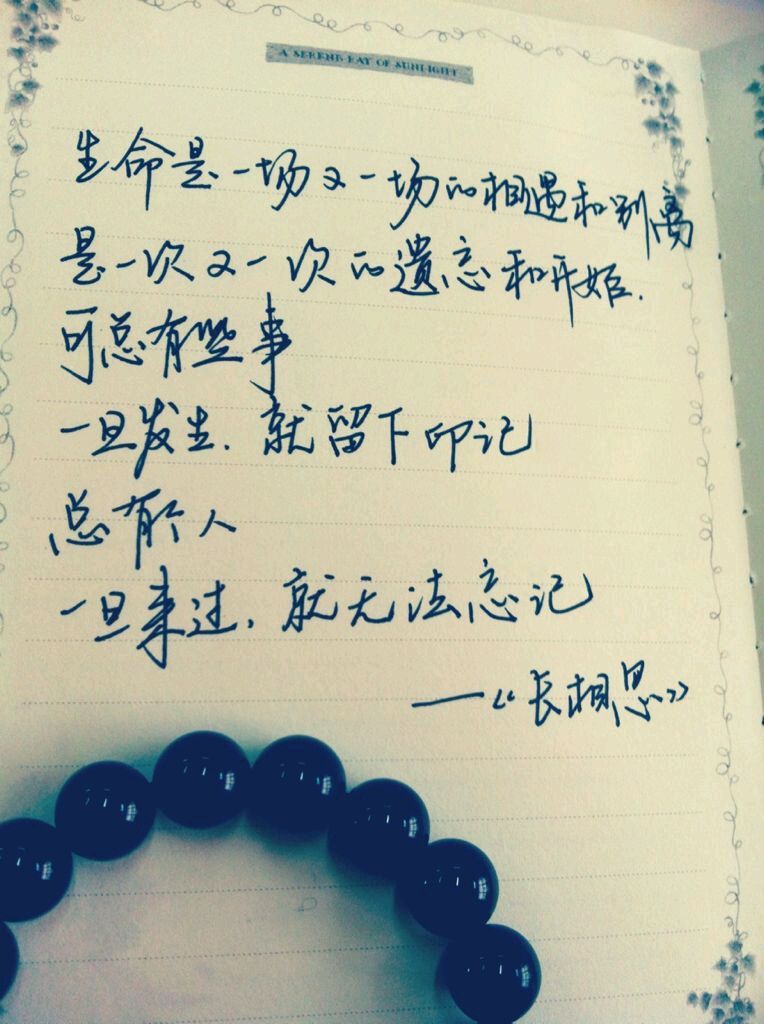 A SERENE RAY OF SUNLIGHT
生命是一场又一场的相遇和别离
是一次又一次的遗忘和开始.
可总有些事
一旦发生.就留下印记
总有个人
一旦来过.就无法忘记
——《长相思》